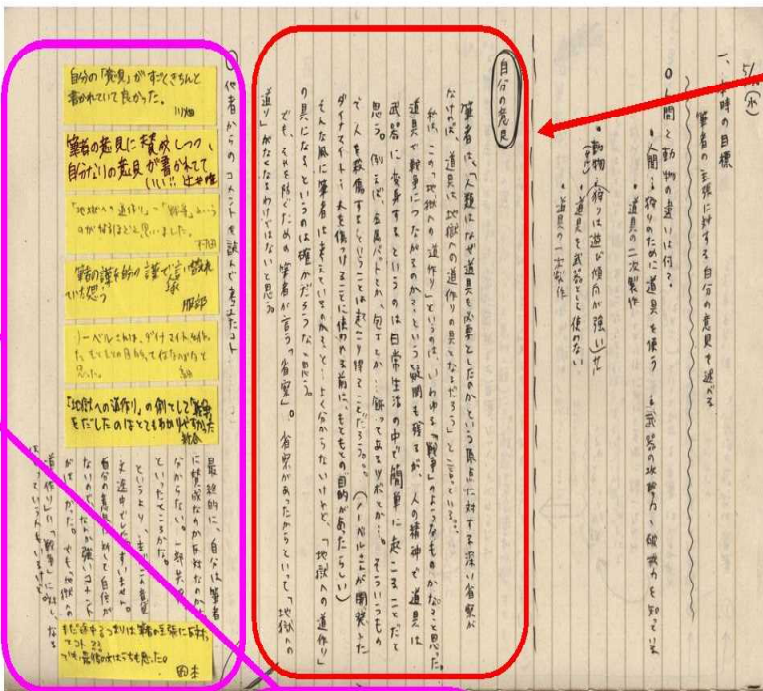 5/ (水)
一、本時の目標
筆者の主張に対する自分の意見を述べる
○人間と動物の違いは何?
・人間→狩りのために道具を使う →武器の攻撃力、破壊力を知っている
・道具の二次製作
・動物→狩りは遊び傾向が強い(サル
・道具を武器として使わない
・道具の一次製作
自分の意見
筆者は、「人類はなぜ道具を必要としたのかという原点に対する深い省察が
なければ、道具は地獄への道作りの具となるだろう」と言っている。
私は、この「地獄への道作り」というのは、いわゆる「戦争」のようなものかなぁと思った。
道具が戦争につながるのか?という疑問も残るが、人の精神で道具は
武器に変身するというのは日常生活の中で簡単に起こることだと
思う。例えば、金属バットとか、包丁とか…飾ってあるツボとか…。そういうもの
で人を殺傷するということは起こり得ることだろう。(ノーベルさんが開発した
ダイナマイトも人を傷つけることに使われる前に、もともとの目的があったらしい)
そんな風に筆者は考えているのかな?と…よく分からないけれど、「地獄への道作り」
の具になるというのは確かだろうなと思う。
でも、それを防ぐための筆者が言う「省察」。省察があったからといって「地獄への
道作り」がなくなるわけではないと思う。
他者からのコメントを読んで考えたコト
自分の「意見」がすごくきちんと
書かれていて良かった。
川畑
筆者の意見に賛成しつつ、
自分なりの意見が書かれてて
いい!!
「地獄への道作り」=「戦争」という
のが なと思いました。
筆者の課
いたと思う
服部
ノーベルさんは、ダイナマイトを作っ
た もともとの目的って なと
思った。
「地獄への道作り」の例として戦争
をだしたのはとてもわかりやすかった
最終的に、自分は筆者
に賛成なのか反対なのか
分からない。一部共
といったところかな。
というより、まず、この意見
文途中でして…すいません。
自分の意見に対して自信が
ないので、なんか強いコメント
がほしかった。でも「地獄への
道作り」=「戦争」に対しなる
ほどっていう人もいる
まだ途中 つまりは筆者の主張に反対
ってコト??
でも最後の文はうちも思った。